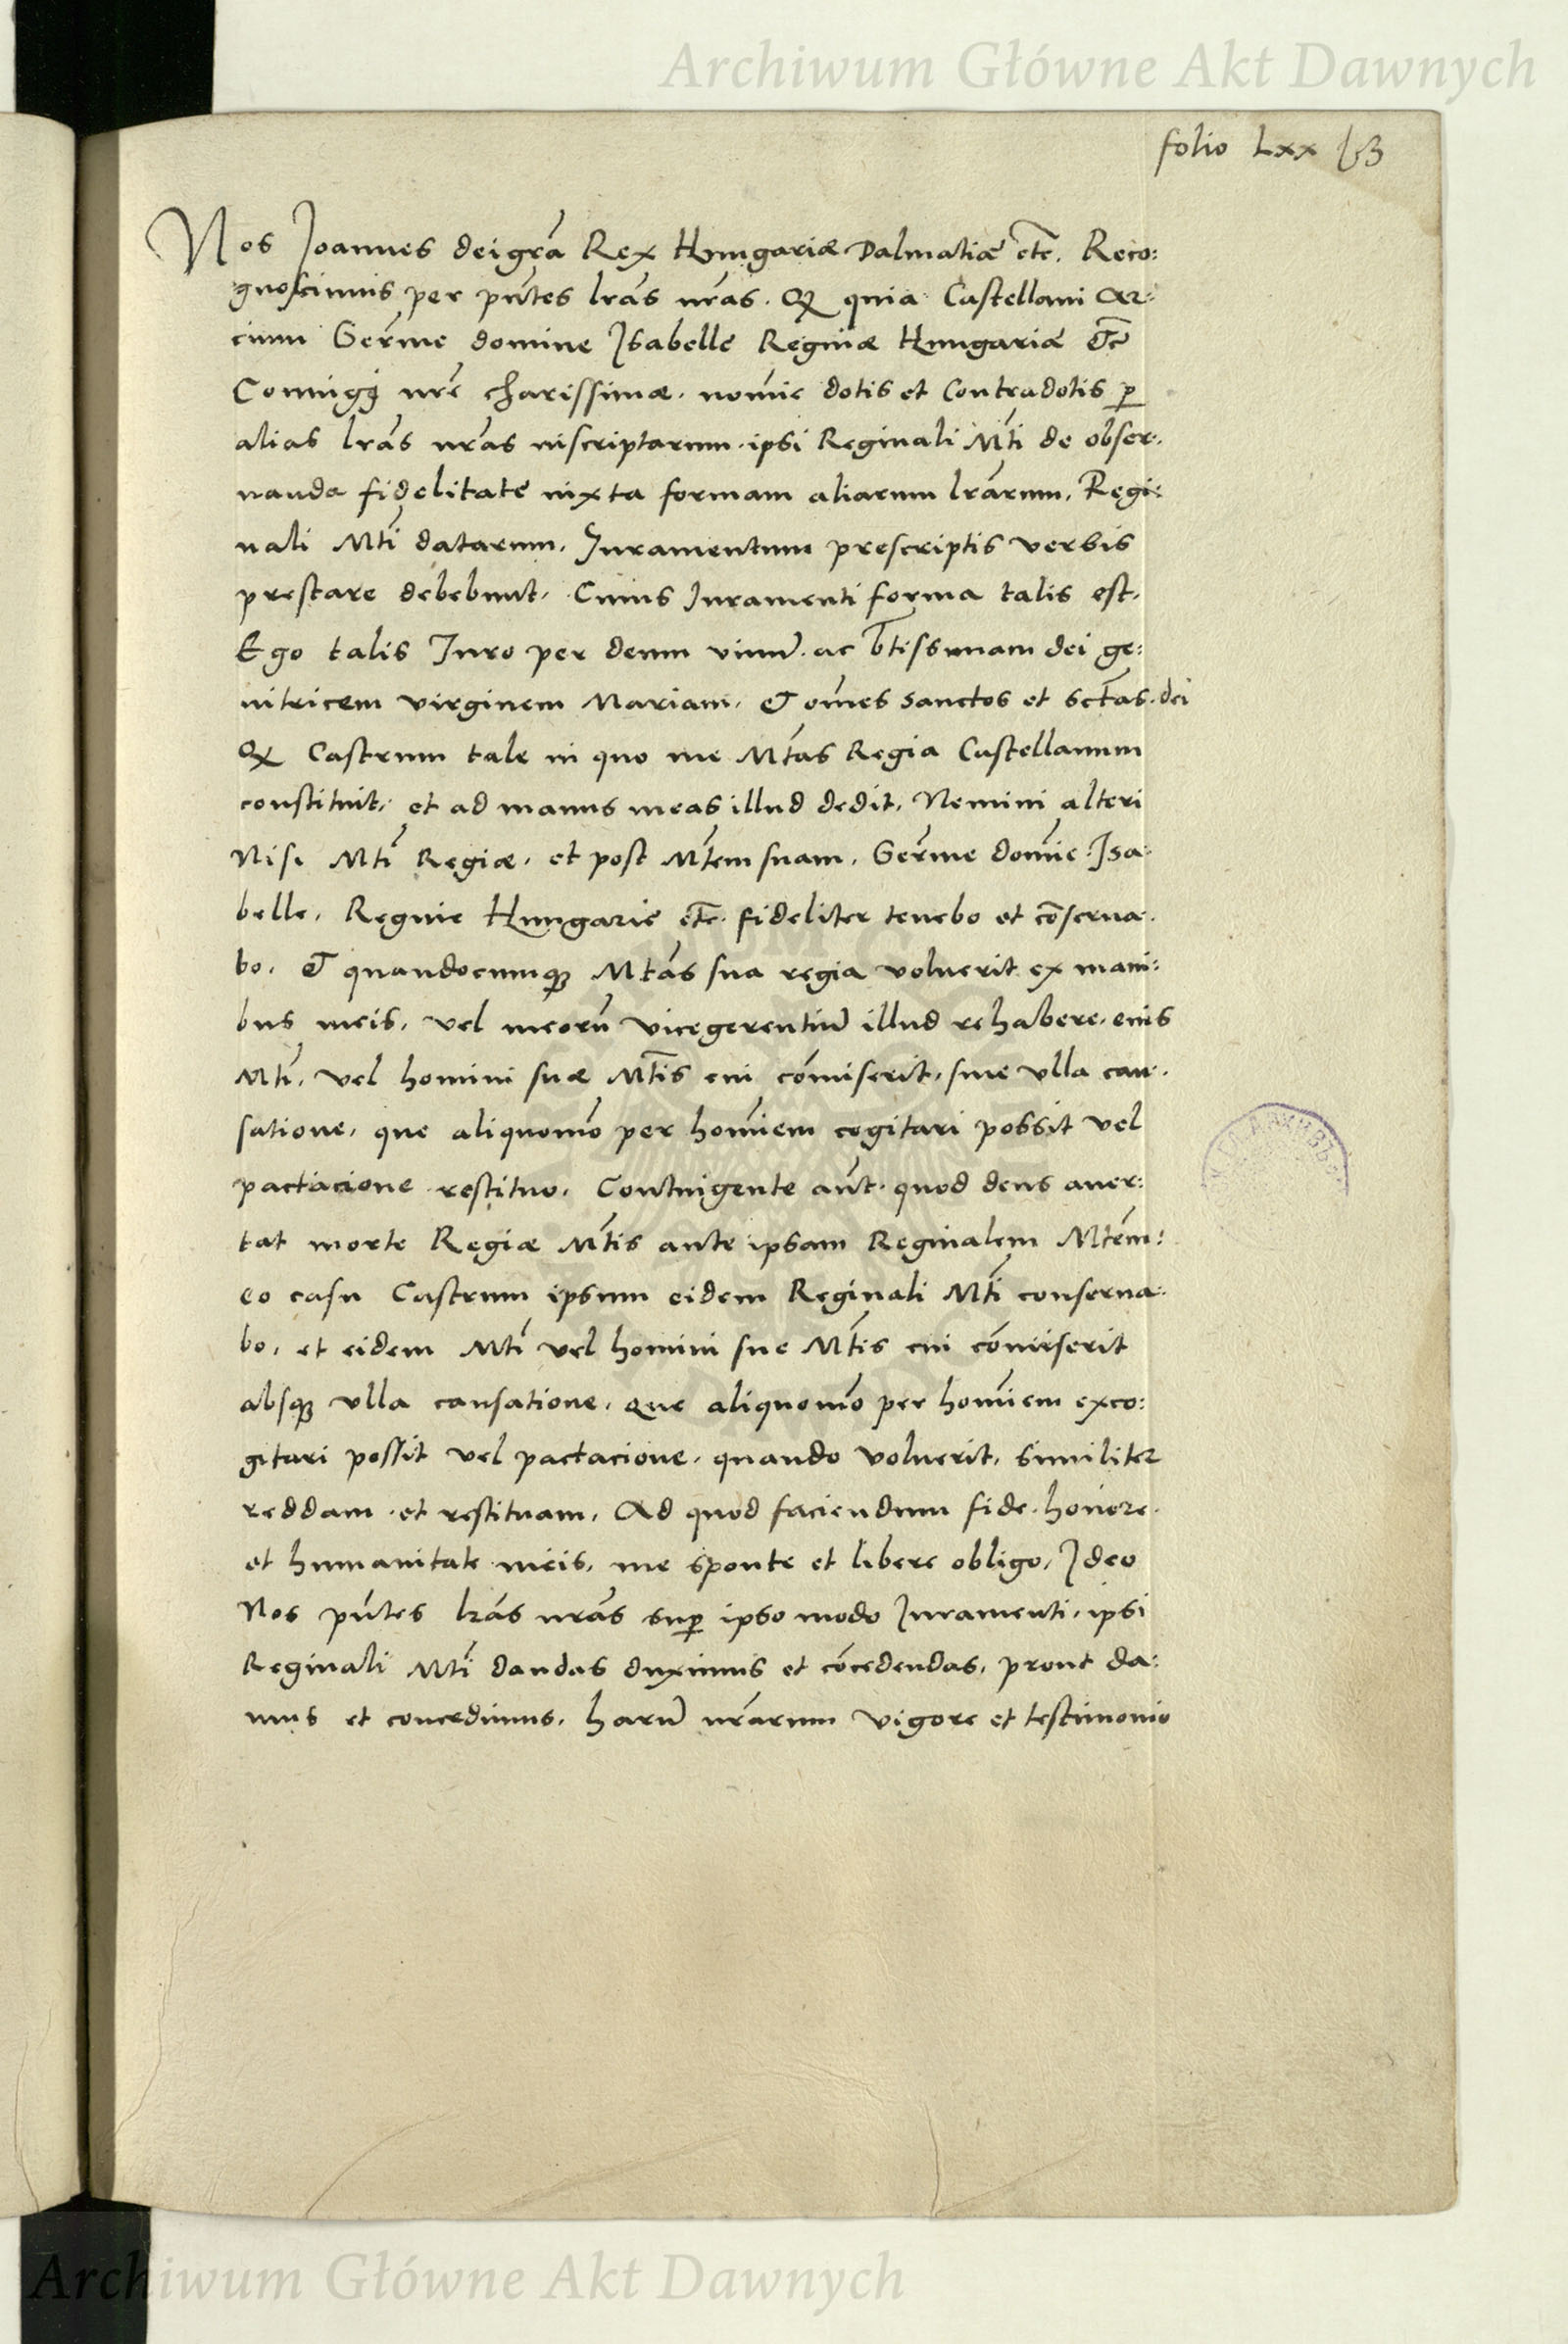 Archiwum Główne Akt Dawnych
folio Lxx
Nos Joannes dei grã Rex Hungariæ Dalmatiæ etc̃. Reco:
gnoscimus per pñtes lrãs nrãs. Qꝫ quia Castellani Ar:
cium Serẽme domine Isabelle Reginæ Hungariæ &c̃
Coniugis nrẽ charissimæ. nomĩe dotis et Contradotis ꝑ
alias lrãs nrãs inscriptarum. ipsi Reginali Mtĩ de obser.
uanda fidelitate iuxta formam aliarum lrãrum, Regi:
nali Mtĩ datarum, Juramentum prescriptis verbis
prestare debebunt. Cuius Juramenti forma talis est.
Ego talis Juro per deum viuũ. ac btĩssimam dei ge:
nitricem virginem Mariam, & om̃es sanctos et sctãs. dei
Qꝫ Castrum tale in quo me Mtãs Regia Castellanum
constituit, et ad manus meas illud dedit, Nemini alteri
Nisi Mtĩ Regiæ, et post Mtẽm suam, Serẽme domĩe Isa:
belle, Regine Hungarie etc̃. fideliter tenebo et cõserua.
bo, & quandocumqꝫ Mtãs sua regia voluerit ex mani:
bus meis, vel meorũ vicegerentiũ illud rehabere, eius
Mtĩ, vel homini suæ Mtĩs cui cõmiserit, sine vlla cau.
satione, que aliquomõ per homĩem cogitari possit vel
pactacione restituo, Contingente aũt. quod deus auer:
tat morte Regiæ Mtĩs ante ipsam Reginalem Mtẽm:
eo casu Castrum ipsum eidem Reginali Mtĩ conserua:
bo, et eidem Mtĩ vel homini sue Mtĩs cui cõmiserit
absqꝫ vlla causatione, que aliquomõ per homĩem exco:
gitari possit vel pactacione, quando voluerit, similiter
reddam. et restituam, Ad quod faciendum fide. honore.
et humanitate meis, me sponte et libere obligo, Ideo
Nos pñtes lrãs nrãs suꝑ ipso modo Juramenti, ipsi
Reginali Mtĩ dandas duximus et cõcedendas, prout da:
mus et concedimus, harũ nrãrum vigore et testimonio
Archiwum Główne Akt Dawnych